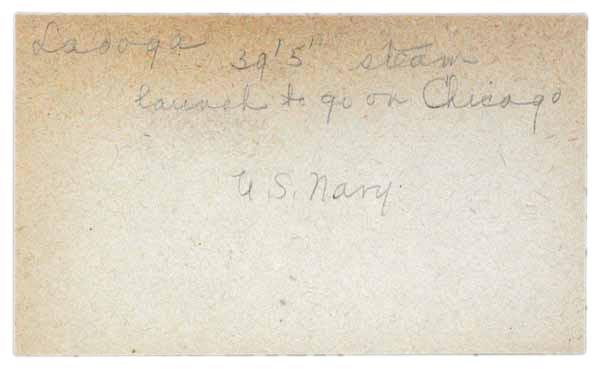 Ladoga 39'5" steam
launch to go on Chicago
U.S. Navy.